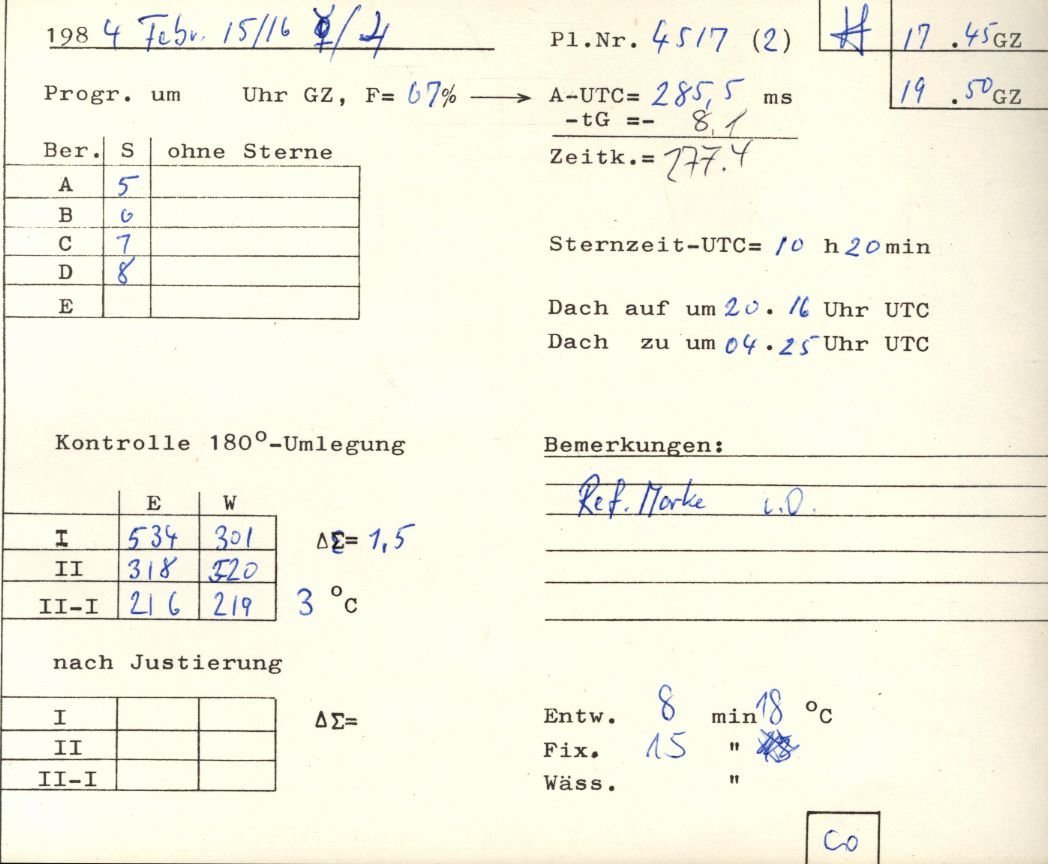 1984 Febr. 15/16 ☿/♃ Pl.Nr. 4517 (2) 17.45 GZ
Progr. um Uhr GZ, F= 67% → A-UTC= 285,5 ms 19.50 GZ
-tG =- 8,1
Zeitk.= 277.4
Ber. S ohne Sterne
A 5
B 6
C 7
D 8
E
Sternzeit-UTC= 10 h 20 min
Dach auf um 20.16 Uhr UTC
Dach zu um 04.25 Uhr UTC
Kontrolle 180°-Umlegung
Bemerkungen:
Ref. Marke i.O.
E W
I 534 301 ΔΣ= 1,5
II 318 520
II-I 216 219 3 °C
nach Justierung
I ΔΣ=
II
II-I
Entw. 8 min 18 °C
Fix. 15 "
Wäss. "
Co